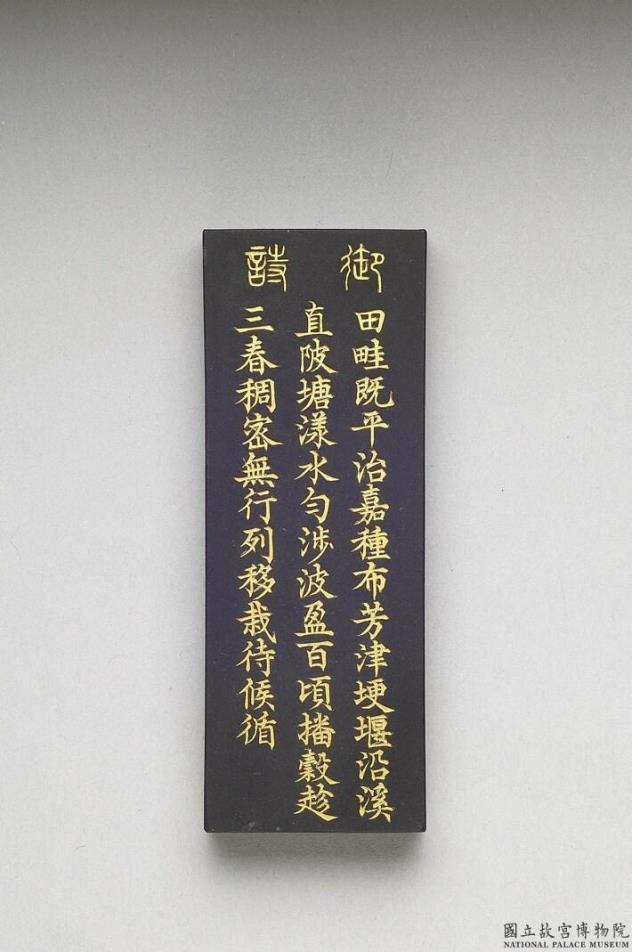 御詩
田畦既平治嘉種布芳津埂堰沿溪
直陂塘漾水勻涉波盈百頃播穀趁
三春稠密無行列移栽待候循
國立故宮博物院
NATIONAL PALACE MUSEUM